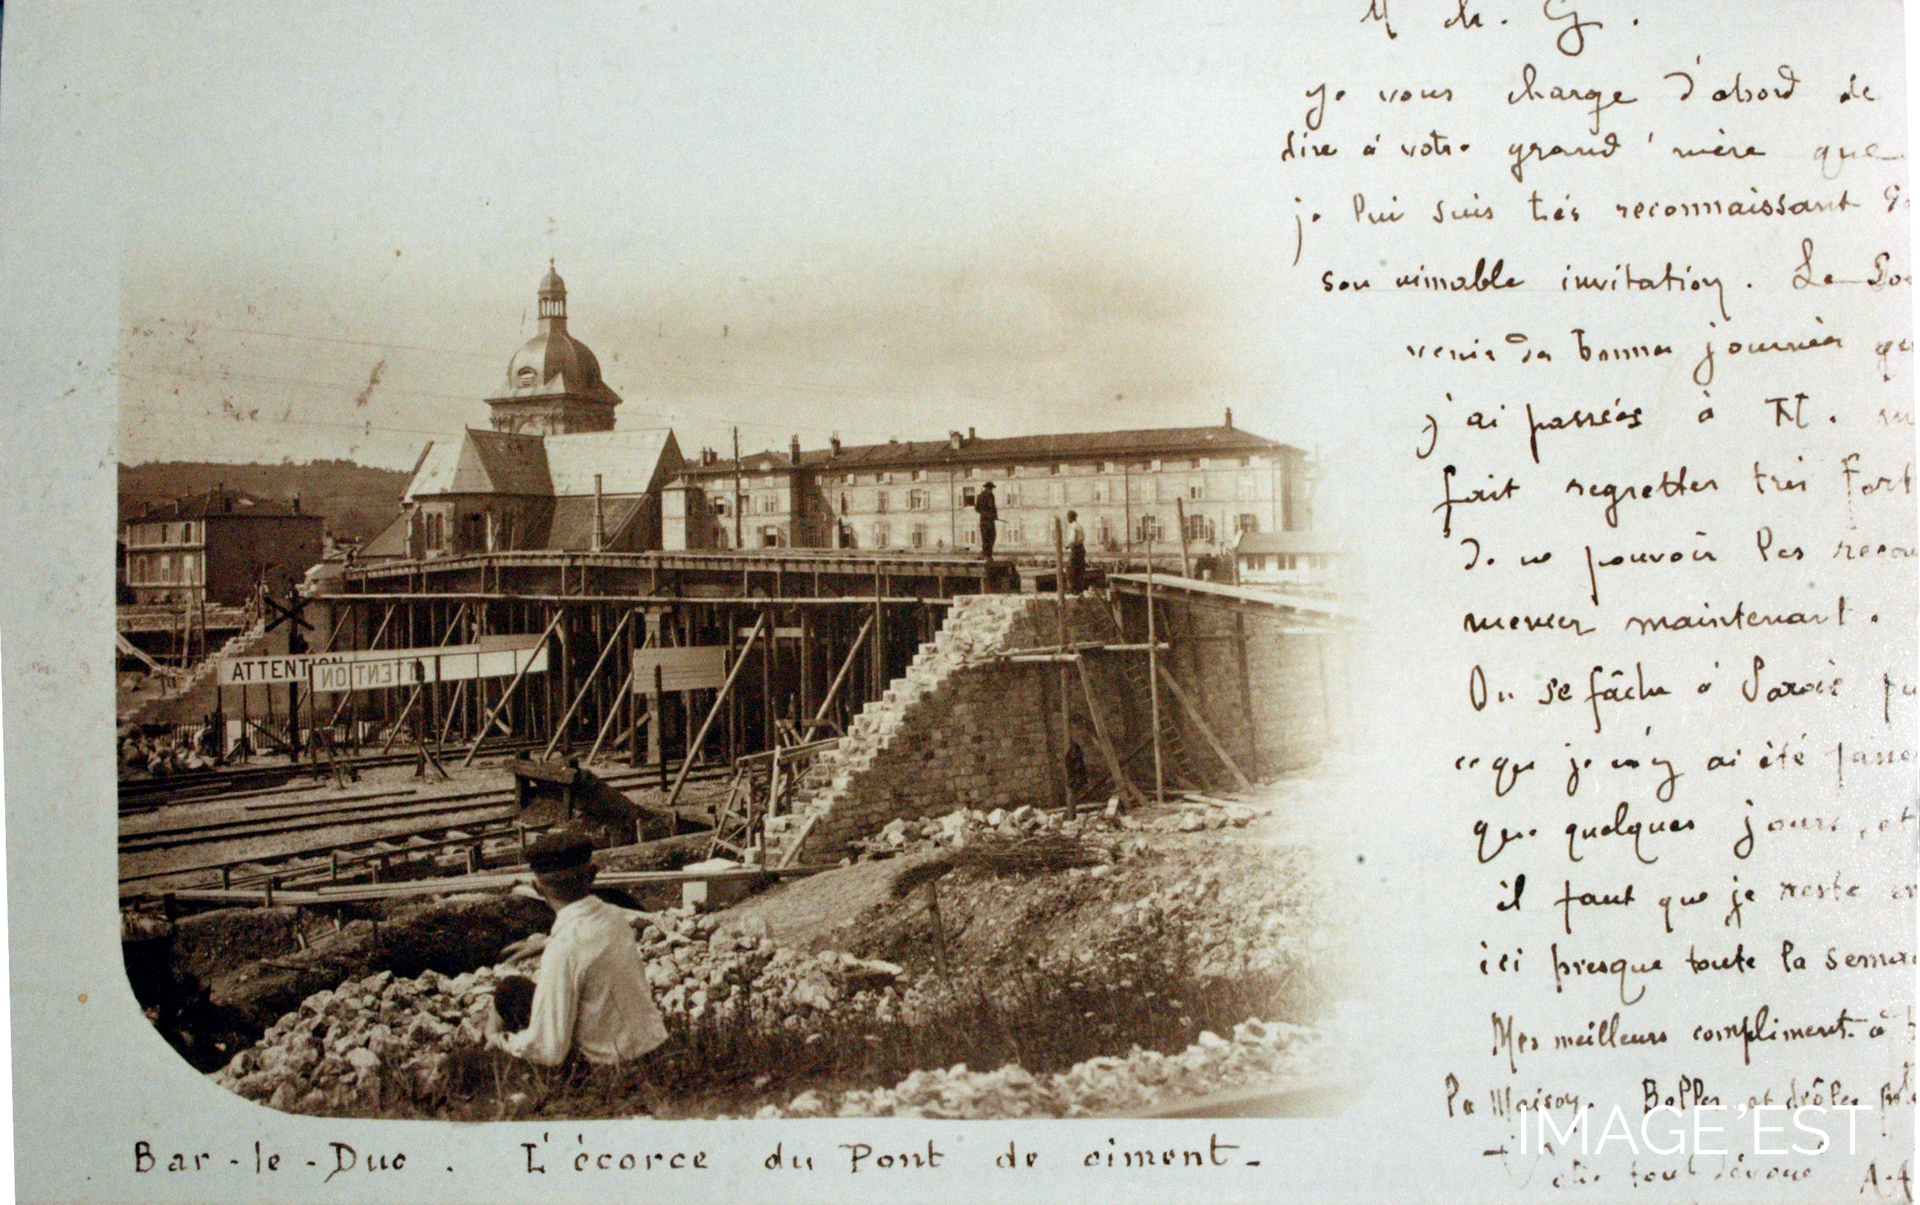 M de G.
je vous charge d'abord de
dire à votre grand'mère que
je lui suis très reconnaissant de
son aimable invitation. Le Sou
venir des bonnes journées que
j'ai passées à
fait regretter très fort
de ne pouvoir les recom
mencer maintenant.
On se fâche à Paroi
ce que je n'y ai été passer
que quelques jours, et
il faut que je reste en
ici presque toute la semai
Mes meilleurs compliments à
la Maison. Belles et drôles
tout dévoué A.A
ATTENTION
ATTENTION
Bar-le-Duc. L'écorce du Pont de ciment-
IMAGE'EST